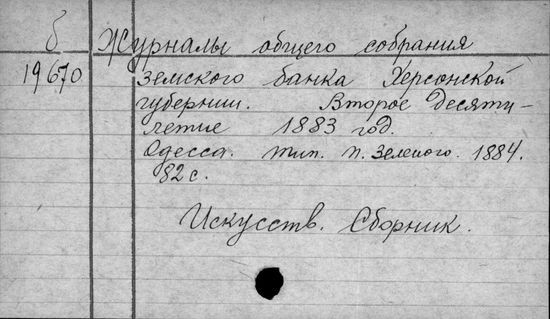 б Журналы общего собрания
19670 земского банка Херсонской
губернии. Второе Десяти-
летие 1883 год.
Одесса. тип. П. Зеленого. 1884.
82 с.
Искусств. Сборник.